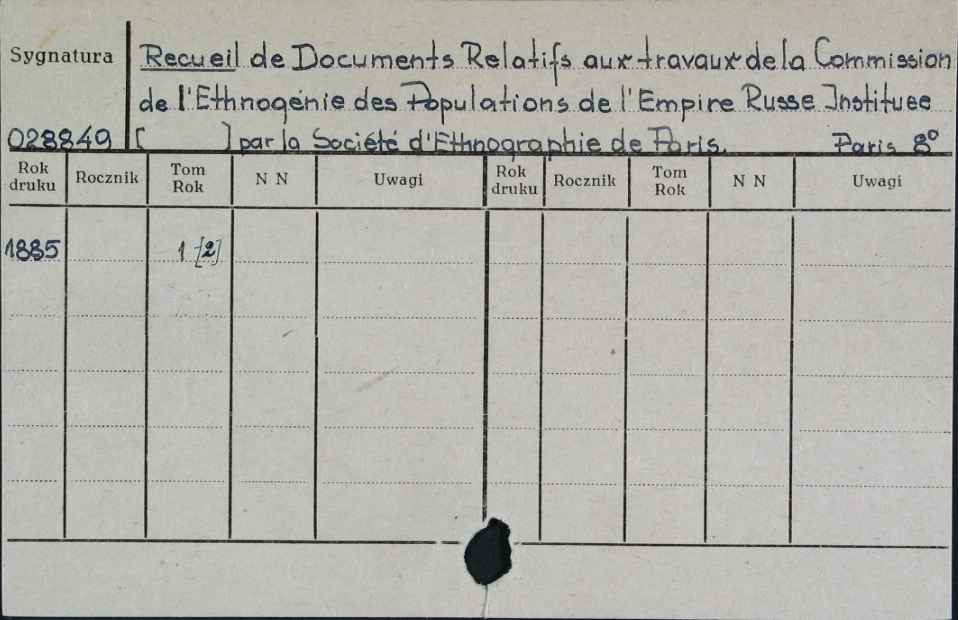 Sygnatura Recueil de Documents Relatifs aux travaux de la Commission
de l'Ethnogénie des Populations de l'Empire Russe Instituee
028849 [ ] par la Société d'Ethnographie de Paris. Paris 8°
Rok druku Rocznik Tom Rok N N Uwagi Rok druku Rocznik Tom Rok N N Uwagi
1885 1 [2]